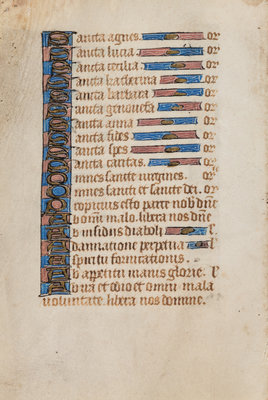 Sancta agnes. or
Sancta lucia. or
Sancta cecilia or
Sancta katherina or
Sancta barbara or
Sancta genovefa or
Sancta anna or
Sancta fides or
Sancta spes or
Sancta caritas. or
Omnes sancte virgines. or
Omnes sancti et sancte dei. or
Propicius esto parce nobis dñe
Ab omi malo. libera nos dñe
Ab insidiis diaboli l.
A dannatione perpetua l.
A spiritu fornicationis. l.
Ab appetitu inanis glorie. l.
Ab ira et odio et omni mala
voluntate. libera nos domine.